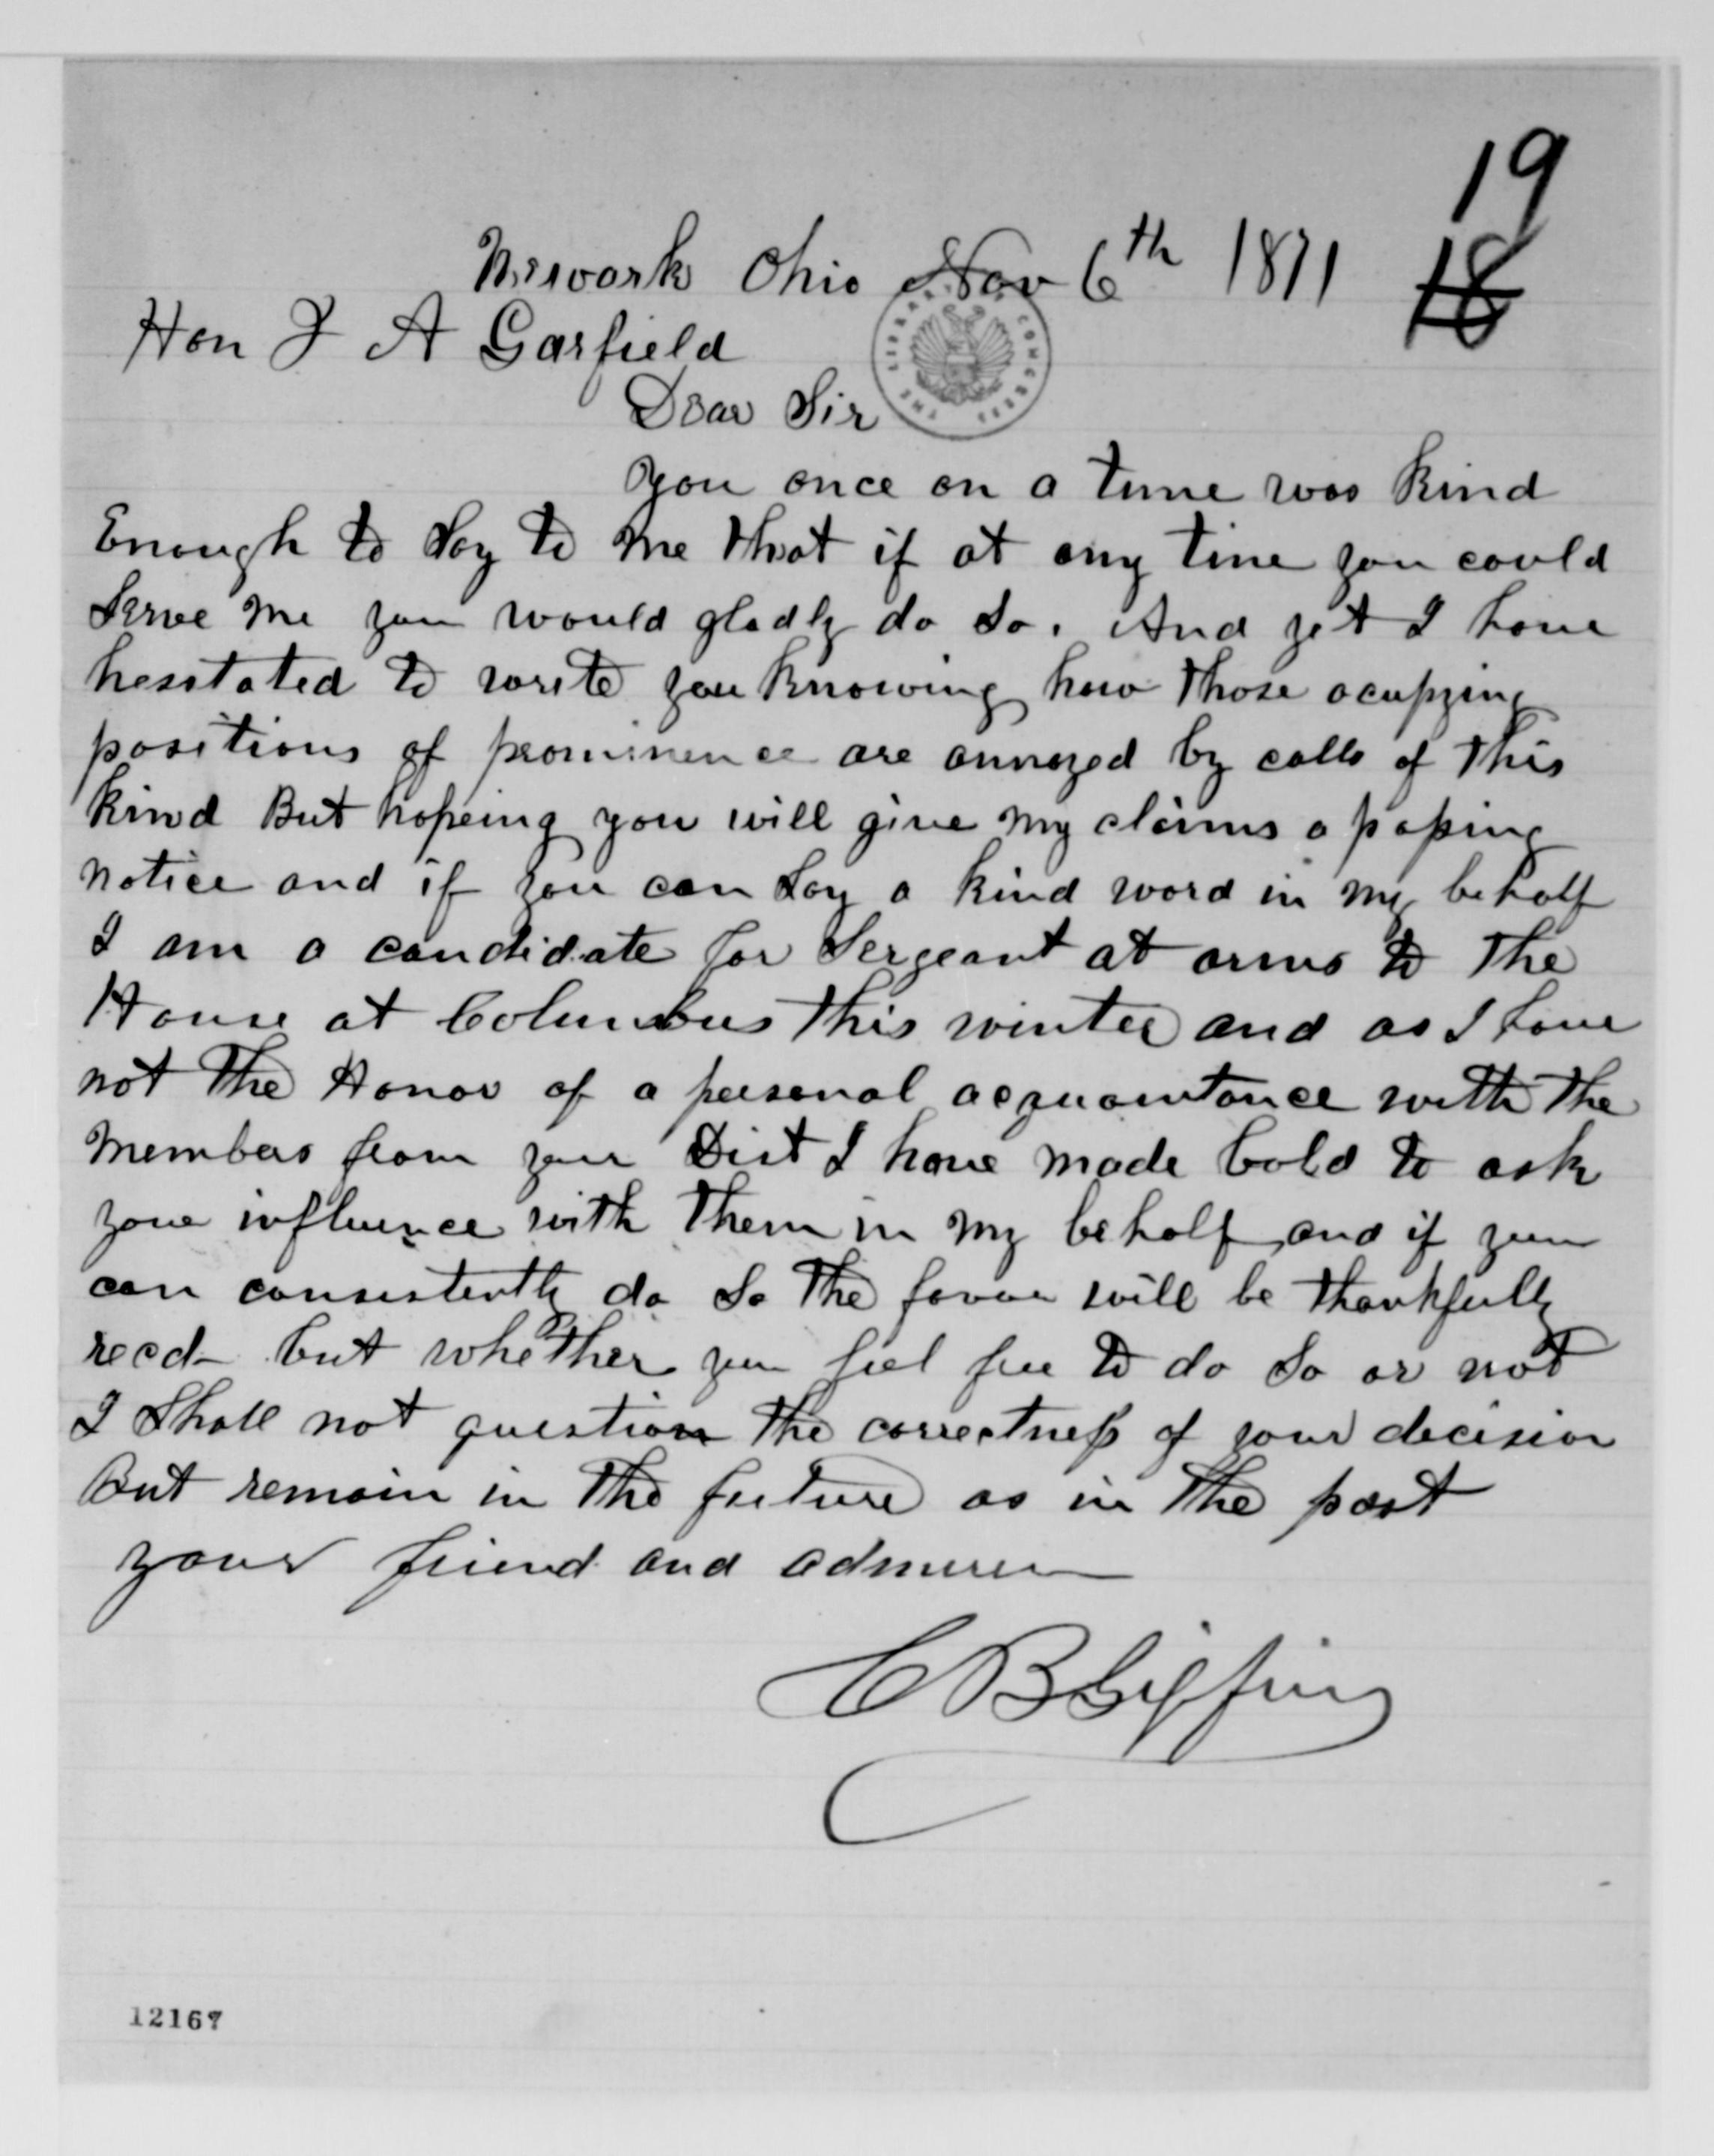 19
Newark Ohio Nov 6th 1871
18
Hon J A Garfield
THE LIBRARY OF CONGRESS
Dear Sir
you once on a time was kind
Enough to Say to me that if at any time you could
Serve me you would gladly do So. And yet I have
hesstated to write you knowing how those ocupying
positions of prominence are annoyed by calls of this
kind But hopeing you will give my claims a passing
notice and if you can Say a kind word in my behalf
I am a candidate for Sergeant at arms to the
House at Columbus this winter and as I have
not the Honor of a personal acquaintance with the
Members from your Dist I have made bold to ask
your influence with them in my behalf and if you
can consistently do So the favor will be thankfully
recd- but whether you feel free to do So or not
I Shall not question the correctness of your decision
But remain in the future as in the past
your friend and admirer
C B Giffin
12167